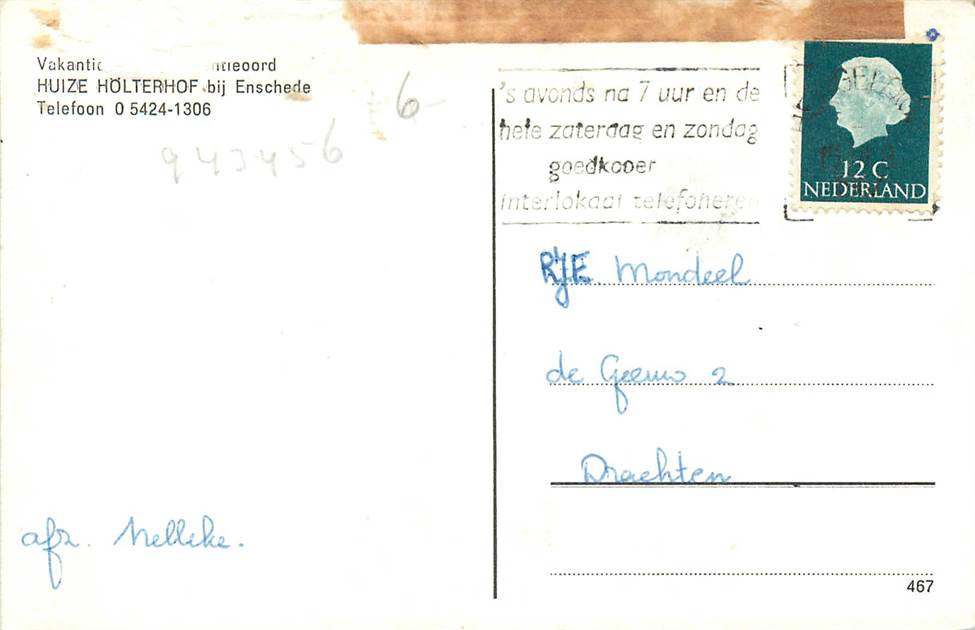 HUIZE HÖLTERHOF bij Enschede
Telefoon 0 5424-1306
6-
943456
's avonds na 7 uur en de
hele zaterdag en zondag
goedkoper
interlokaal telefoneren
12 C
NEDERLAND
RJE. Mondeel
de Geeuw 2
Drachten
afz. Nelleke.
467